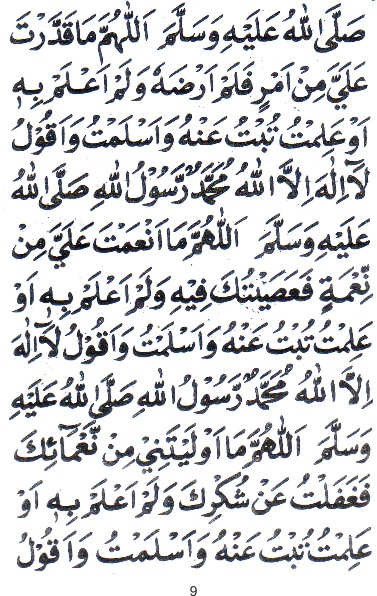 صَلَّى اللهُ عَلَيْهِ وَسَلَّمَ اَللّٰهُمَّ مَا قَدَّرْتَ
عَلَيَّ مِنْ اَمْرٍ فَلَمْ اَرْضَهُ وَلَمْ اَعْلَمْ بِهٖ
اَوْ عَلِمْتُ تُبْتُ عَنْهُ وَاَسْلَمْتُ وَاَقُوْلُ
لَآ اِلٰهَ اِلَّا اللهُ مُحَمَّدٌ رَّسُوْلُ اللهِ صَلَّى اللهُ
عَلَيْهِ وَسَلَّمَ اَللّٰهُمَّ مَا اَنْعَمْتَ عَلَيَّ مِنْ
نِّعْمَةٍ فَعَصَيْتُكَ فِيْهِ وَلَمْ اَعْلَمْ بِهٖ اَوْ
عَلِمْتُ تُبْتُ عَنْهُ وَاَسْلَمْتُ وَاَقُوْلُ لَآ اِلٰهَ
اِلَّا اللهُ مُحَمَّدٌ رَّسُوْلُ اللهِ صَلَّى اللهُ عَلَيْهِ
وَسَلَّمَ اَللّٰهُمَّ مَا اَوْلَيْتَنِيْ مِنْ نَّعْمَآئِكَ
فَغَفَلْتُ عَنْ شُكْرِكَ وَلَمْ اَعْلَمْ بِهٖ اَوْ
عَلِمْتُ تُبْتُ عَنْهُ وَاَسْلَمْتُ وَاَقُوْلُ
9